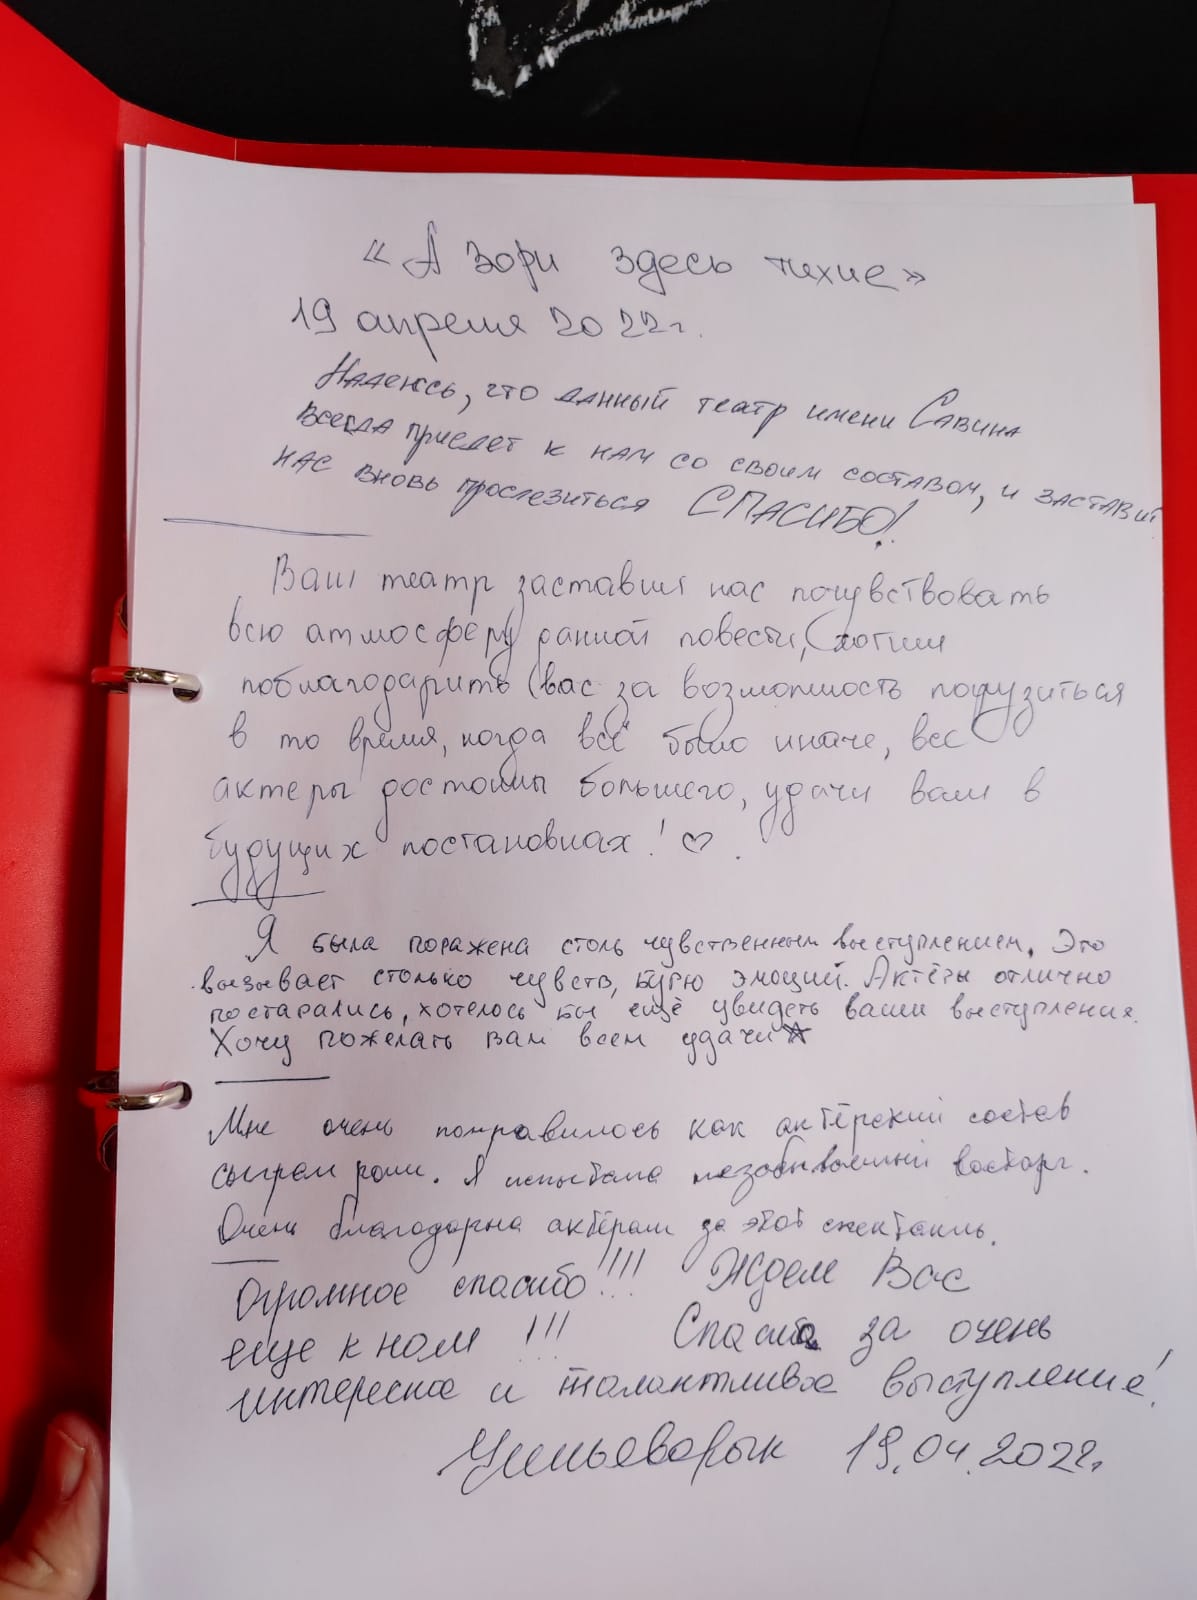 «А зори здесь тихие»
19 апреля 2022г.
Надеюсь, что данный театр имени Савина
всегда приедет к нам со своим составом, и заставит
нас вновь прослезиться СПАСИБО!
Ваш театр заставил нас почувствовать
всю атмосферу ранной повести, хотим
поблагодарить вас за возможность погрузиться
в то время, когда всё было иначе, все
актеры достойны большего, удачи вам в
будущих постановках! ♡.
Я была поражена столь чувственным выступлением. Это
вызывает столько чувств, бурю эмоций. Актёры отлично
постарались, хотелось бы ещё увидеть ваши выступления.
Хочу пожелать вам всем удачи☆
Мне очень понравилось как актёрский состав
сыграл роли. Я испытала незабываемый восторг.
Очень благодарна актёрам за этот спектакль.
Огромное спасибо!!!! Ждем Вас
еще к нам!!! Спасибо за очень
интересное и талантливое выступление!
Усть-19.04.2022г.